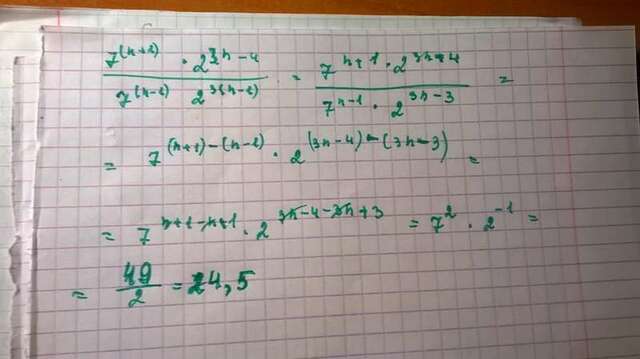 7^(n+1) · 2^3n-4 / 7^(n-1) 2^3(n-1) = 7^n+1 · 2^3n-4 / 7^n-1 · 2^3n-3 =
= 7^(n+1)-(n-1) · 2^(3n-4)-(3n-3) =
= 7^n+1-n+1 · 2^3n-4-3n+3 = 7^2 · 2^-1 =
= 49/2 = 24,5